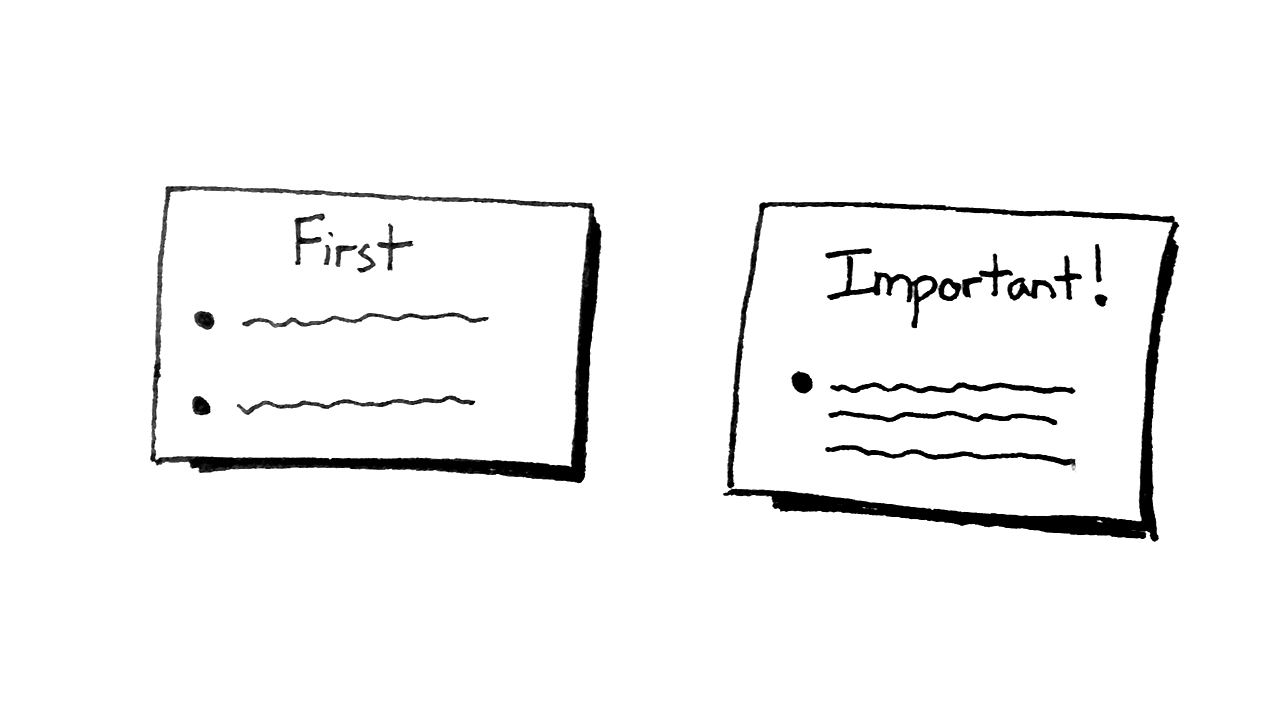 First
Important!